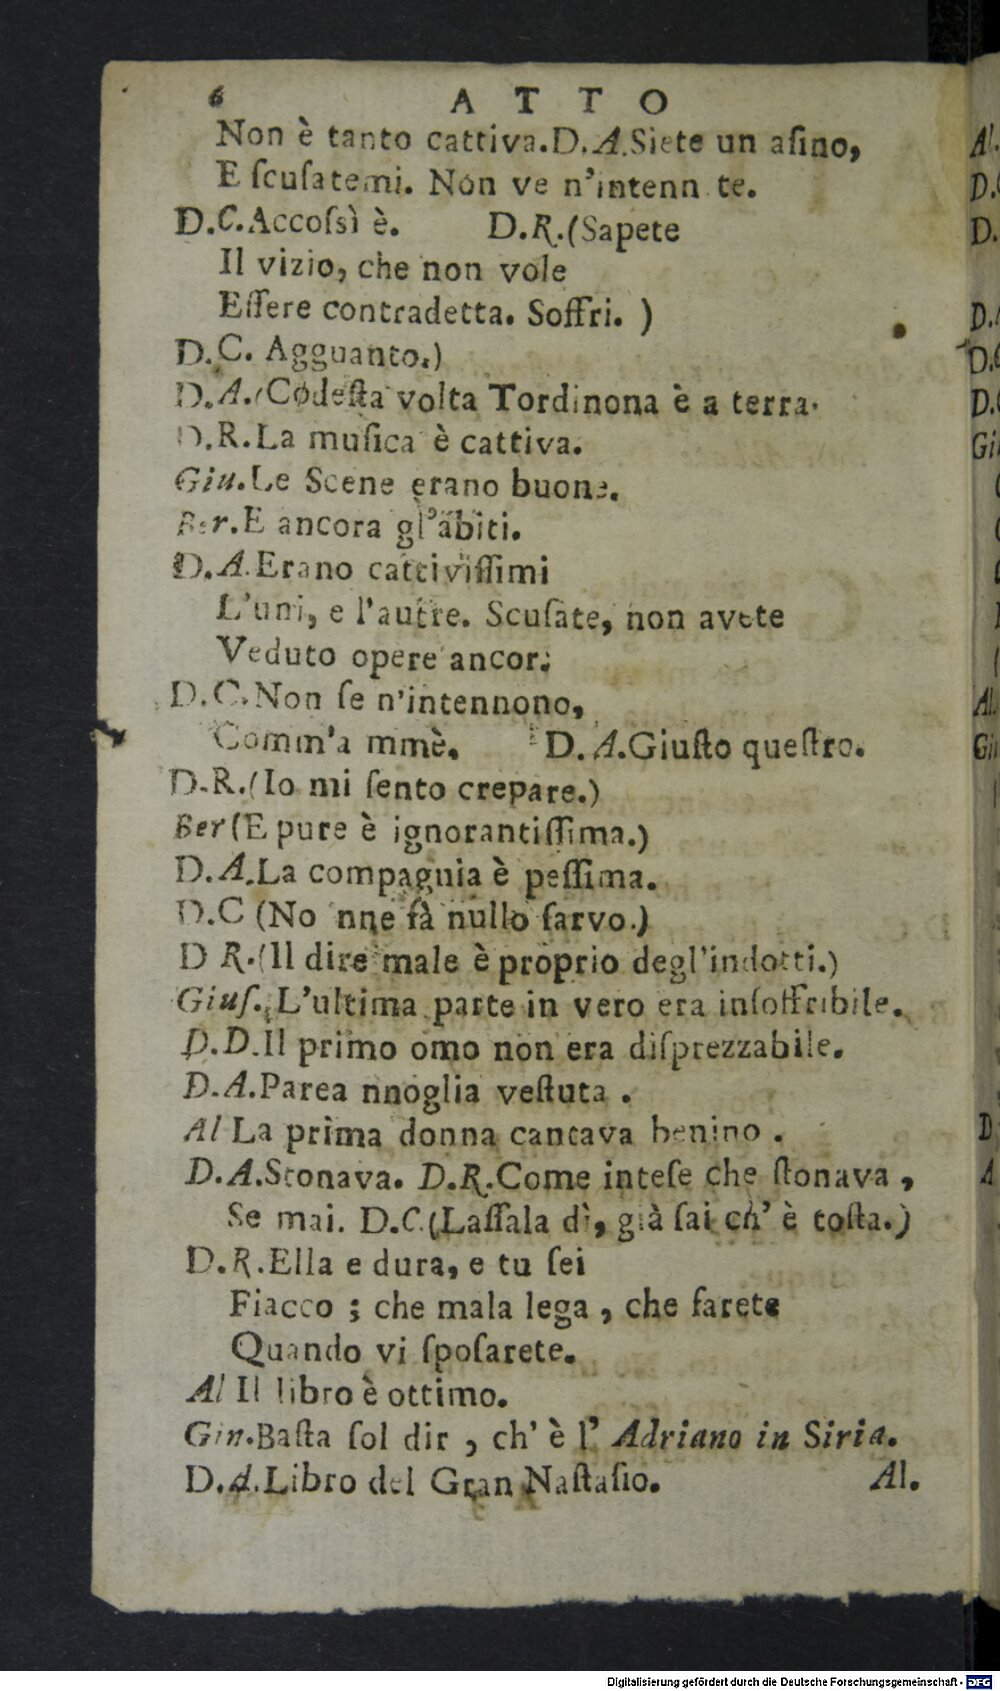 6 ATTO
Non è tanto cattiva. D. A. Siete un aſino,
E ſcuſatemi. Non ve n'intenn te.
D. C. Accoſsì è. D. R. (Sapete
Il vizio, che non vole
Eſſere contradetta. Soffri. )
D. C. Agguanto.)
D. A. (Codeſta volta Tordinona è a terra.
D. R. La muſica è cattiva.
Giu. Le Scene erano buone.
Ber. E ancora gl'abiti.
D. A. Erano cattiviſſimi
L'uni, e l'autre. Scuſate, non avete
Veduto opere ancor.
D. C. Non ſe n'intennono,
Comm'a mmè. D. A. Giuſto queſtro.
D. R. (Io mi ſento crepare.)
Ber (E pure è ignorantiſſima.)
D. A. La compagnia è peſſima.
D. C (No nne fà nullo ſarvo.)
D R. (Il dire male è proprio degl'indotti.)
Giuſ. L'ultima parte in vero era inſoffribile.
D. D. Il primo omo non era diſprezzabile.
D. A. Parea nnoglia veſtuta .
Al La prima donna cantava benino .
D. A. Stonava. D. R. Come inteſe che ſtonava ,
Se mai. D. C. (Laſſala dì, già ſai ch' è toſta.)
D. R. Ella e dura, e tu ſei
Fiacco ; che mala lega , che farete
Quando vi ſpoſarete.
Al Il libro è ottimo.
Gin. Baſta ſol dir , ch' è l' Adriano in Siria.
D. A. Libro del Gran Naſtaſio. Al.
Al.
D.
D.
D.
D.
D.
Gi
Al.
Gi
D
A
Digitalisierung gefördert durch die Deutsche Forschungsgemeinschaft - DFG